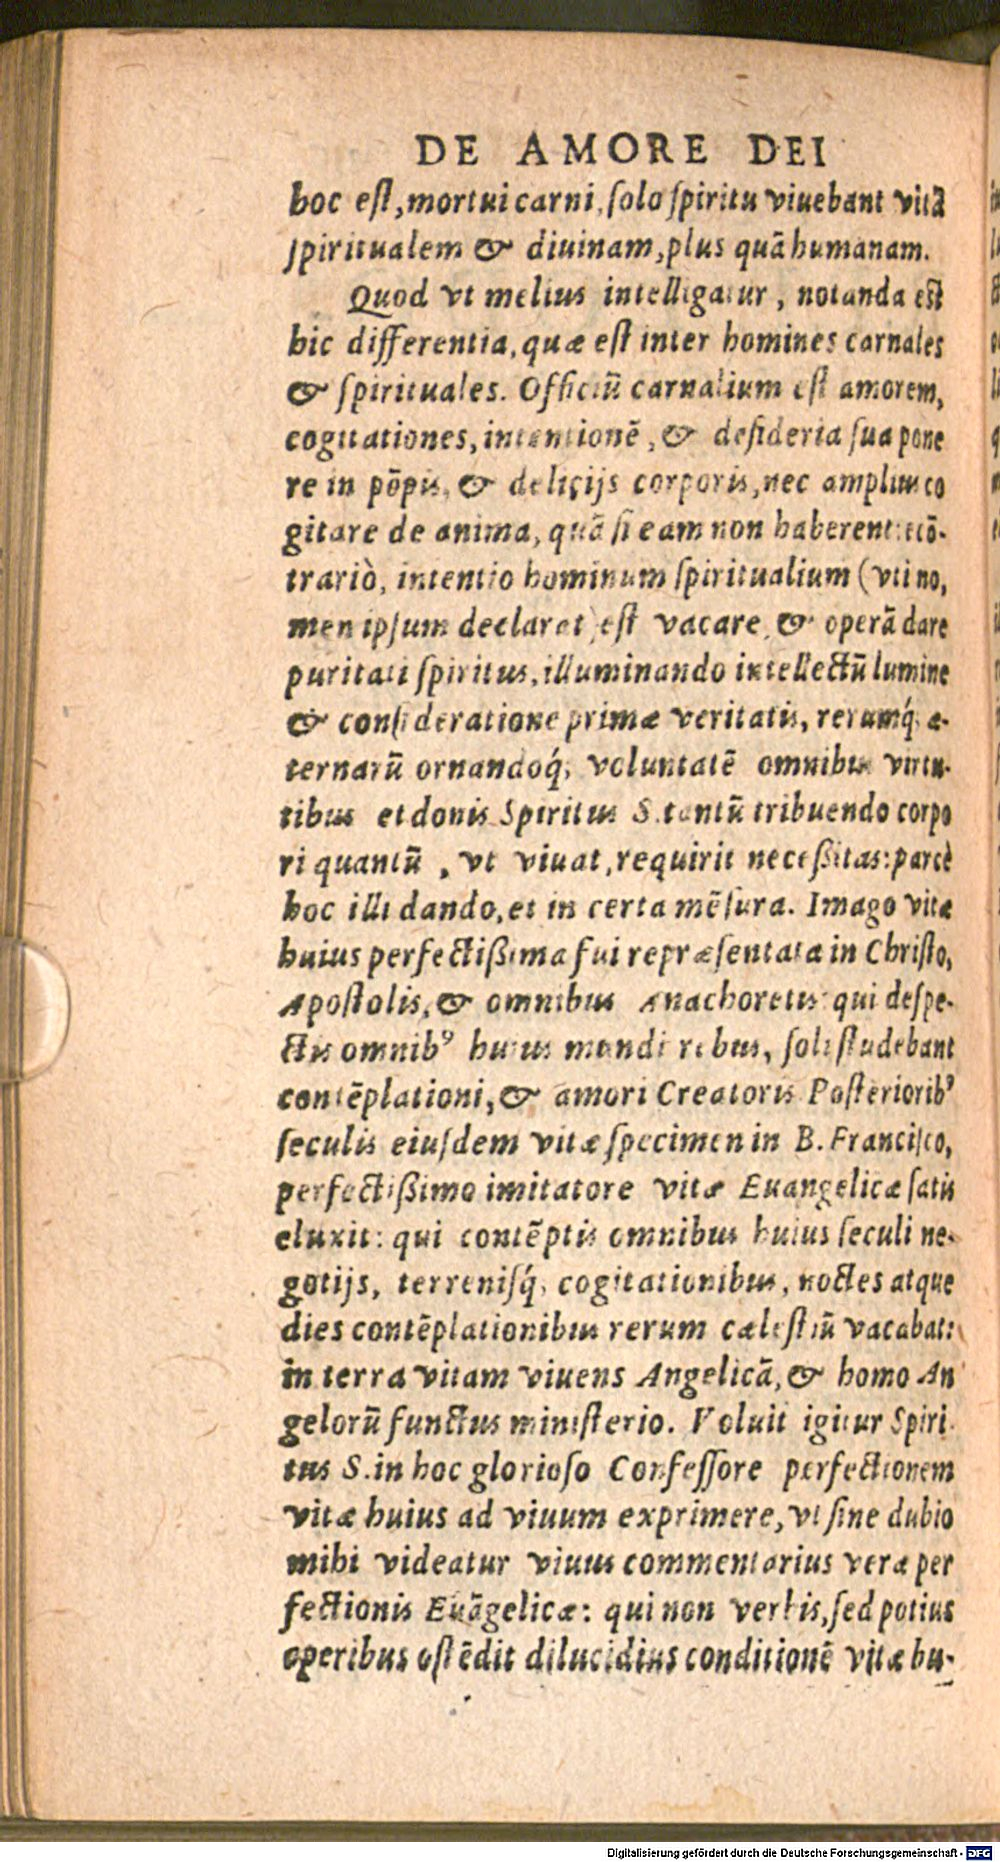 DE AMORE DEI
hoc eſt, mortui carni, ſolo ſpiritu viuebant vitā
ſpiritualem & diuinam, plus quā humanam.
Quod vt melius intelligatur, notanda eſt
hic differentia, quæ eſt inter homines carnales
& ſpirituales. Officiū carnalium eſt amorem,
cogitationes, intentionē, & deſideria ſua pone
re in pōpis, & delicijs corporis, nec amplius co
gitare de anima, quā ſi eam non haberent: ecō-
trariò, intentio hominum ſpiritualium (vti no,
men ipſum declarat) eſt vacare, & operā dare
puritati ſpiritus, illuminando intellectū lumine
& conſideratione primæ veritatis, rerumq́; æ-
ternarū ornandoq́; voluntatē omnibus virtu-
tibus et donis Spiritus S. tantū tribuendo corpo
ri quantū, vt viuat, requirit neceßitas: parcè
hoc illi dando, et in certa mēſura. Imago vitæ
huius perfectißima fui repræſentata in Chriſto,
Apoſtolis, & omnibus Anachoretis: qui deſpe-
ctis omnibꝰ huius mundi rebus, ſoli ſtudebant
contēplationi, & amori Creatoris Poſterioribꝰ
ſeculis eiuſdem vitæ ſpecimen in B. Franciſco,
perfectißimo imitatore vitæ Euangelicæ ſatis
eluxit: qui contēptis omnibus huius ſeculi ne-
gotijs, terreniſq́; cogitationibus, noctes atque
dies contēplationibus rerum cæleſtiū vacabat:
in terra vitam viuens Angelicā, & homo An
gelorū functus miniſterio. Voluit igitur Spiri-
tus S. in hoc glorioſo Confeſſore perfectionem
vitæ huius ad viuum exprimere, vt ſine dubio
mihi videatur viuus commentarius veræ per
fectionis Euāgelicæ: qui non verbis, ſed potius
operibus oſtēdit dilucidius conditionē vitæ hu-
Digitalisierung gefördert durch die Deutsche Forschungsgemeinschaft - DFG